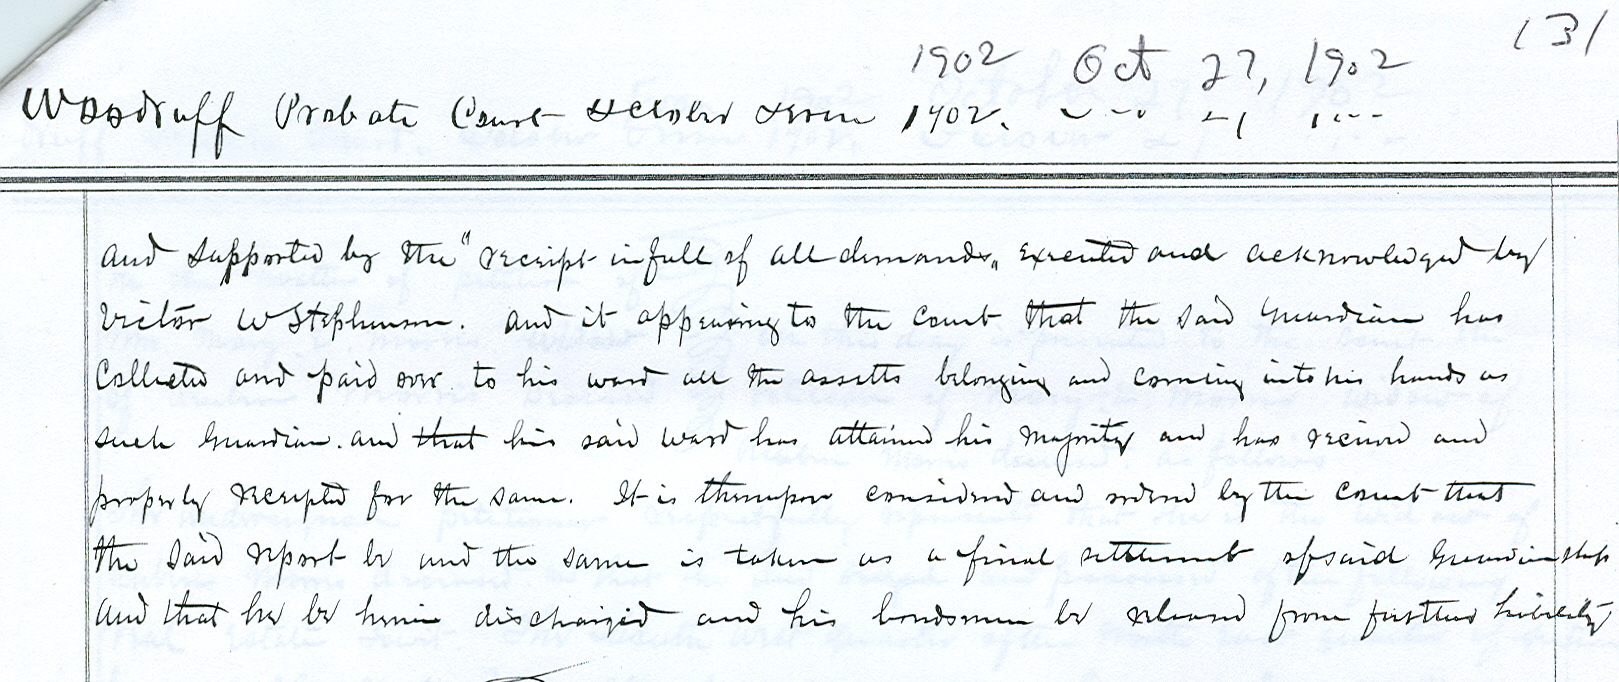 131
1902 Oct 27, 1902
Woodruff Probate Court October Term 1902.
and supported by the "receipt in full of all demands" executed and acknowledged by
Victor W Stephenson. and it appearing to the Court that the said Guardian has
Collected and paid over to his ward all the assetts belonging and coming into his hands as
such Guardian. and that his said ward has attained his majority and has recieved and
properly receipted for the same. It is thereupon considered and ordered by the Court that
the said report be and the same is taken as a final settlement of said Guardianship
and that he be herein discharged and his bondsmen be released from further liability